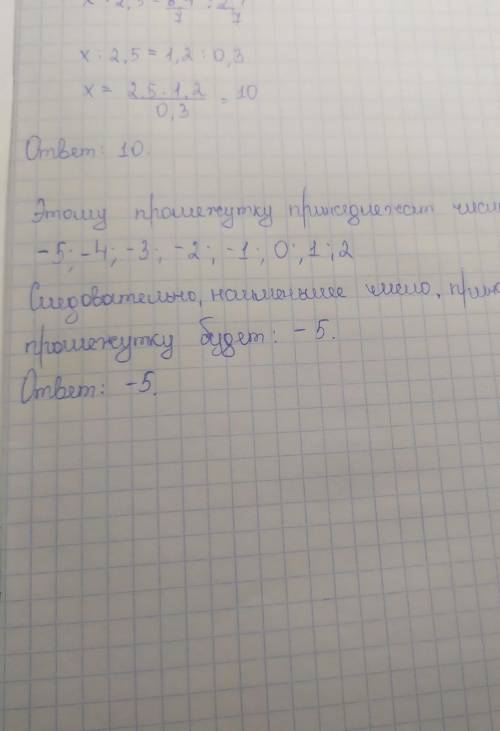 x : 2,5 = 1,2 : 0,3
x = 2,5 · 1,2 / 0,3 = 10
Ответ: 10.
Этому промежутку принадлежат
-5; -4; -3; -2; -1; 0; 1; 2
Следовательно, наименьшее число,
промежутку будет: -5.
Ответ: -5.